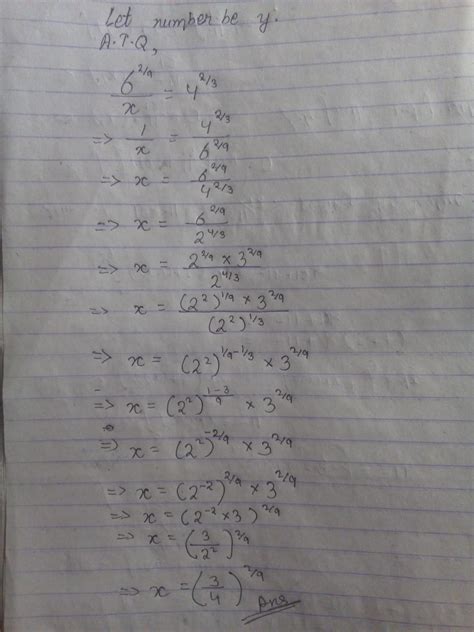 Let number be y.
A.T.Q,
6^{2/9} / x = 4^{2/3}
=> 1/x = 4^{2/3} / 6^{2/9}
=> x = 6^{2/9} / 4^{2/3}
=> x = 6^{2/9} / 2^{4/3}
=> x = 2^{2/9} × 3^{2/9} / 2^{4/3}
=> x = (2^2)^{1/9} × 3^{2/9} / (2^2)^{1/3}
=> x = (2^2)^{1/9-1/3} × 3^{2/9}
=> x = (2^2)^{(1-3)/9} × 3^{2/9}
=> x = (2^2)^{-2/9} × 3^{2/9}
=> x = (2^{-2})^{2/9} × 3^{2/9}
=> x = (2^{-2} × 3)^{2/9}
=> x = (3/2^2)^{2/9}
=> x = (3/4)^{2/9} Ans